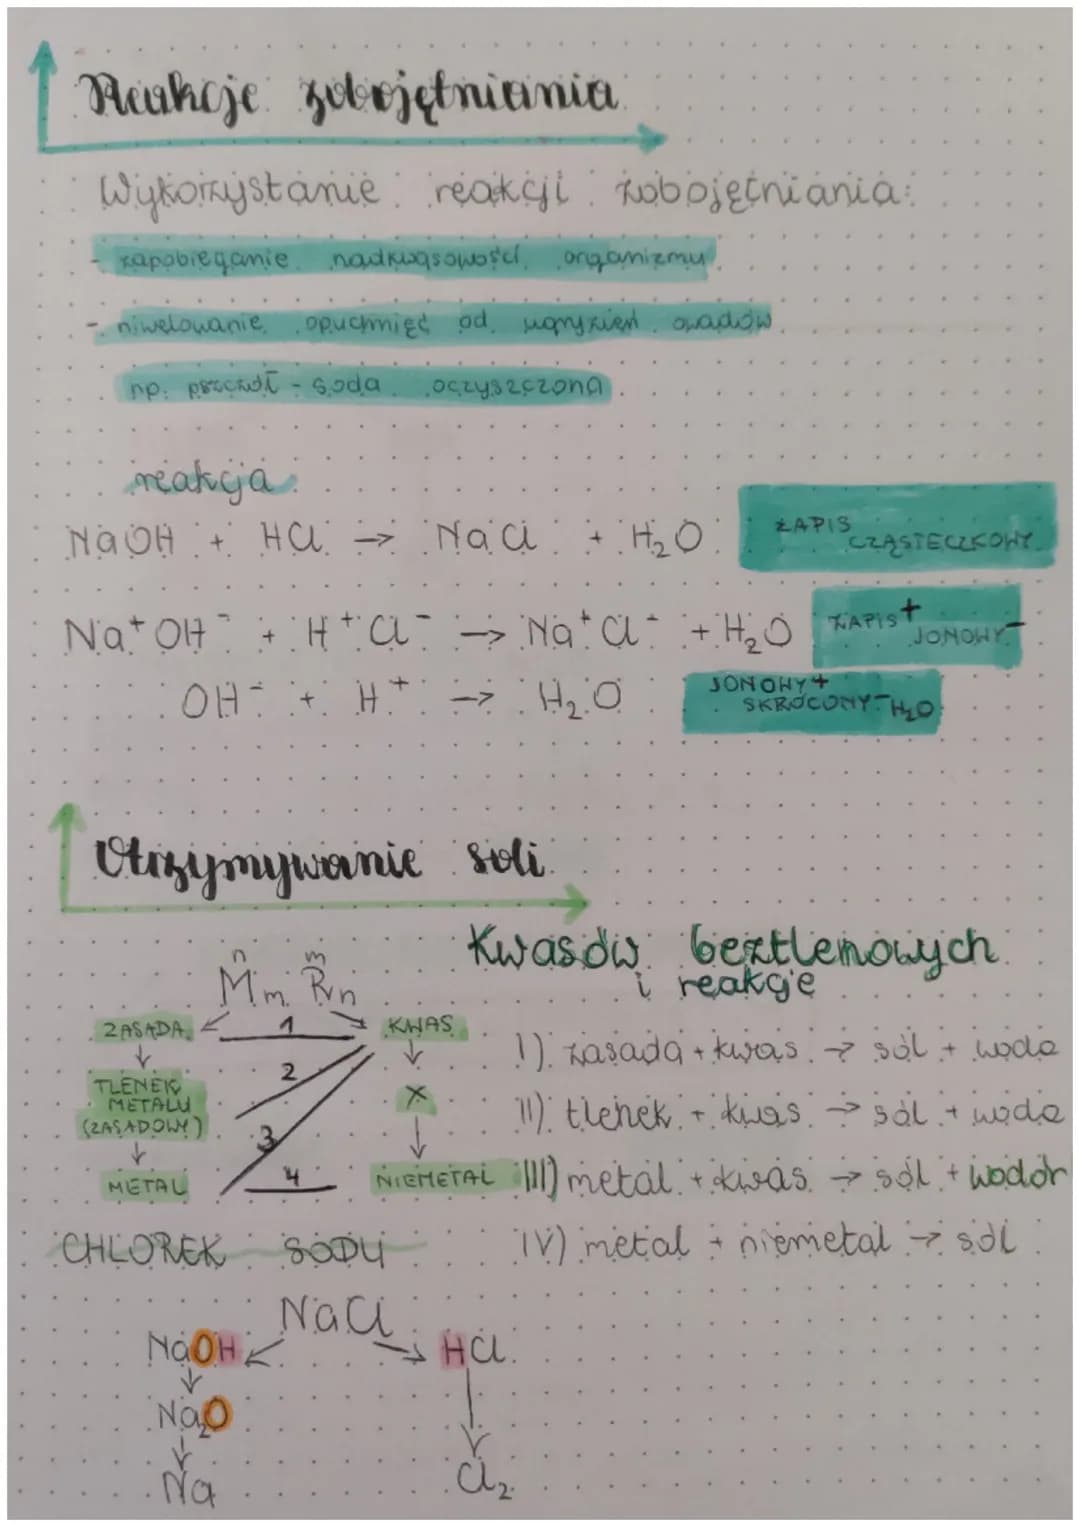 Reakcje zobojętniania
Wykorzystanie reakcji zobojętniania:
- zapobieganie nadkwasowości organizmu
- niwelowanie opuchnięć od ugryzień owadów
np. pszczół - soda oczyszczona
reakcja
NaOH + HCl → NaCl + H₂O ZAPIS CZĄSTECZKOWY
Na⁺OH⁻ + H⁺Cl⁻ → Na⁺Cl⁻ + H₂O ZAPIS + JONOWY -
OH⁻ + H⁺ → H₂O JONOWY + SKRÓCONY - H₂O
Otrzymywanie soli
Kwasów beztlenowych
i reakcje
n m
Mm Rn
ZASADA 1 KWAS
I) zasada + kwas → sól + woda
TLENEK METALU (ZASADOWY) 2 X
II) tlenek + kwas → sól + woda
3
METAL 4 NIEMETAL
III) metal + kwas → sól + wodór
CHLOREK SODU
IV) metal + niemetal → sól
NaCl
NaOH HCl
Na₂O
Na Cl₂